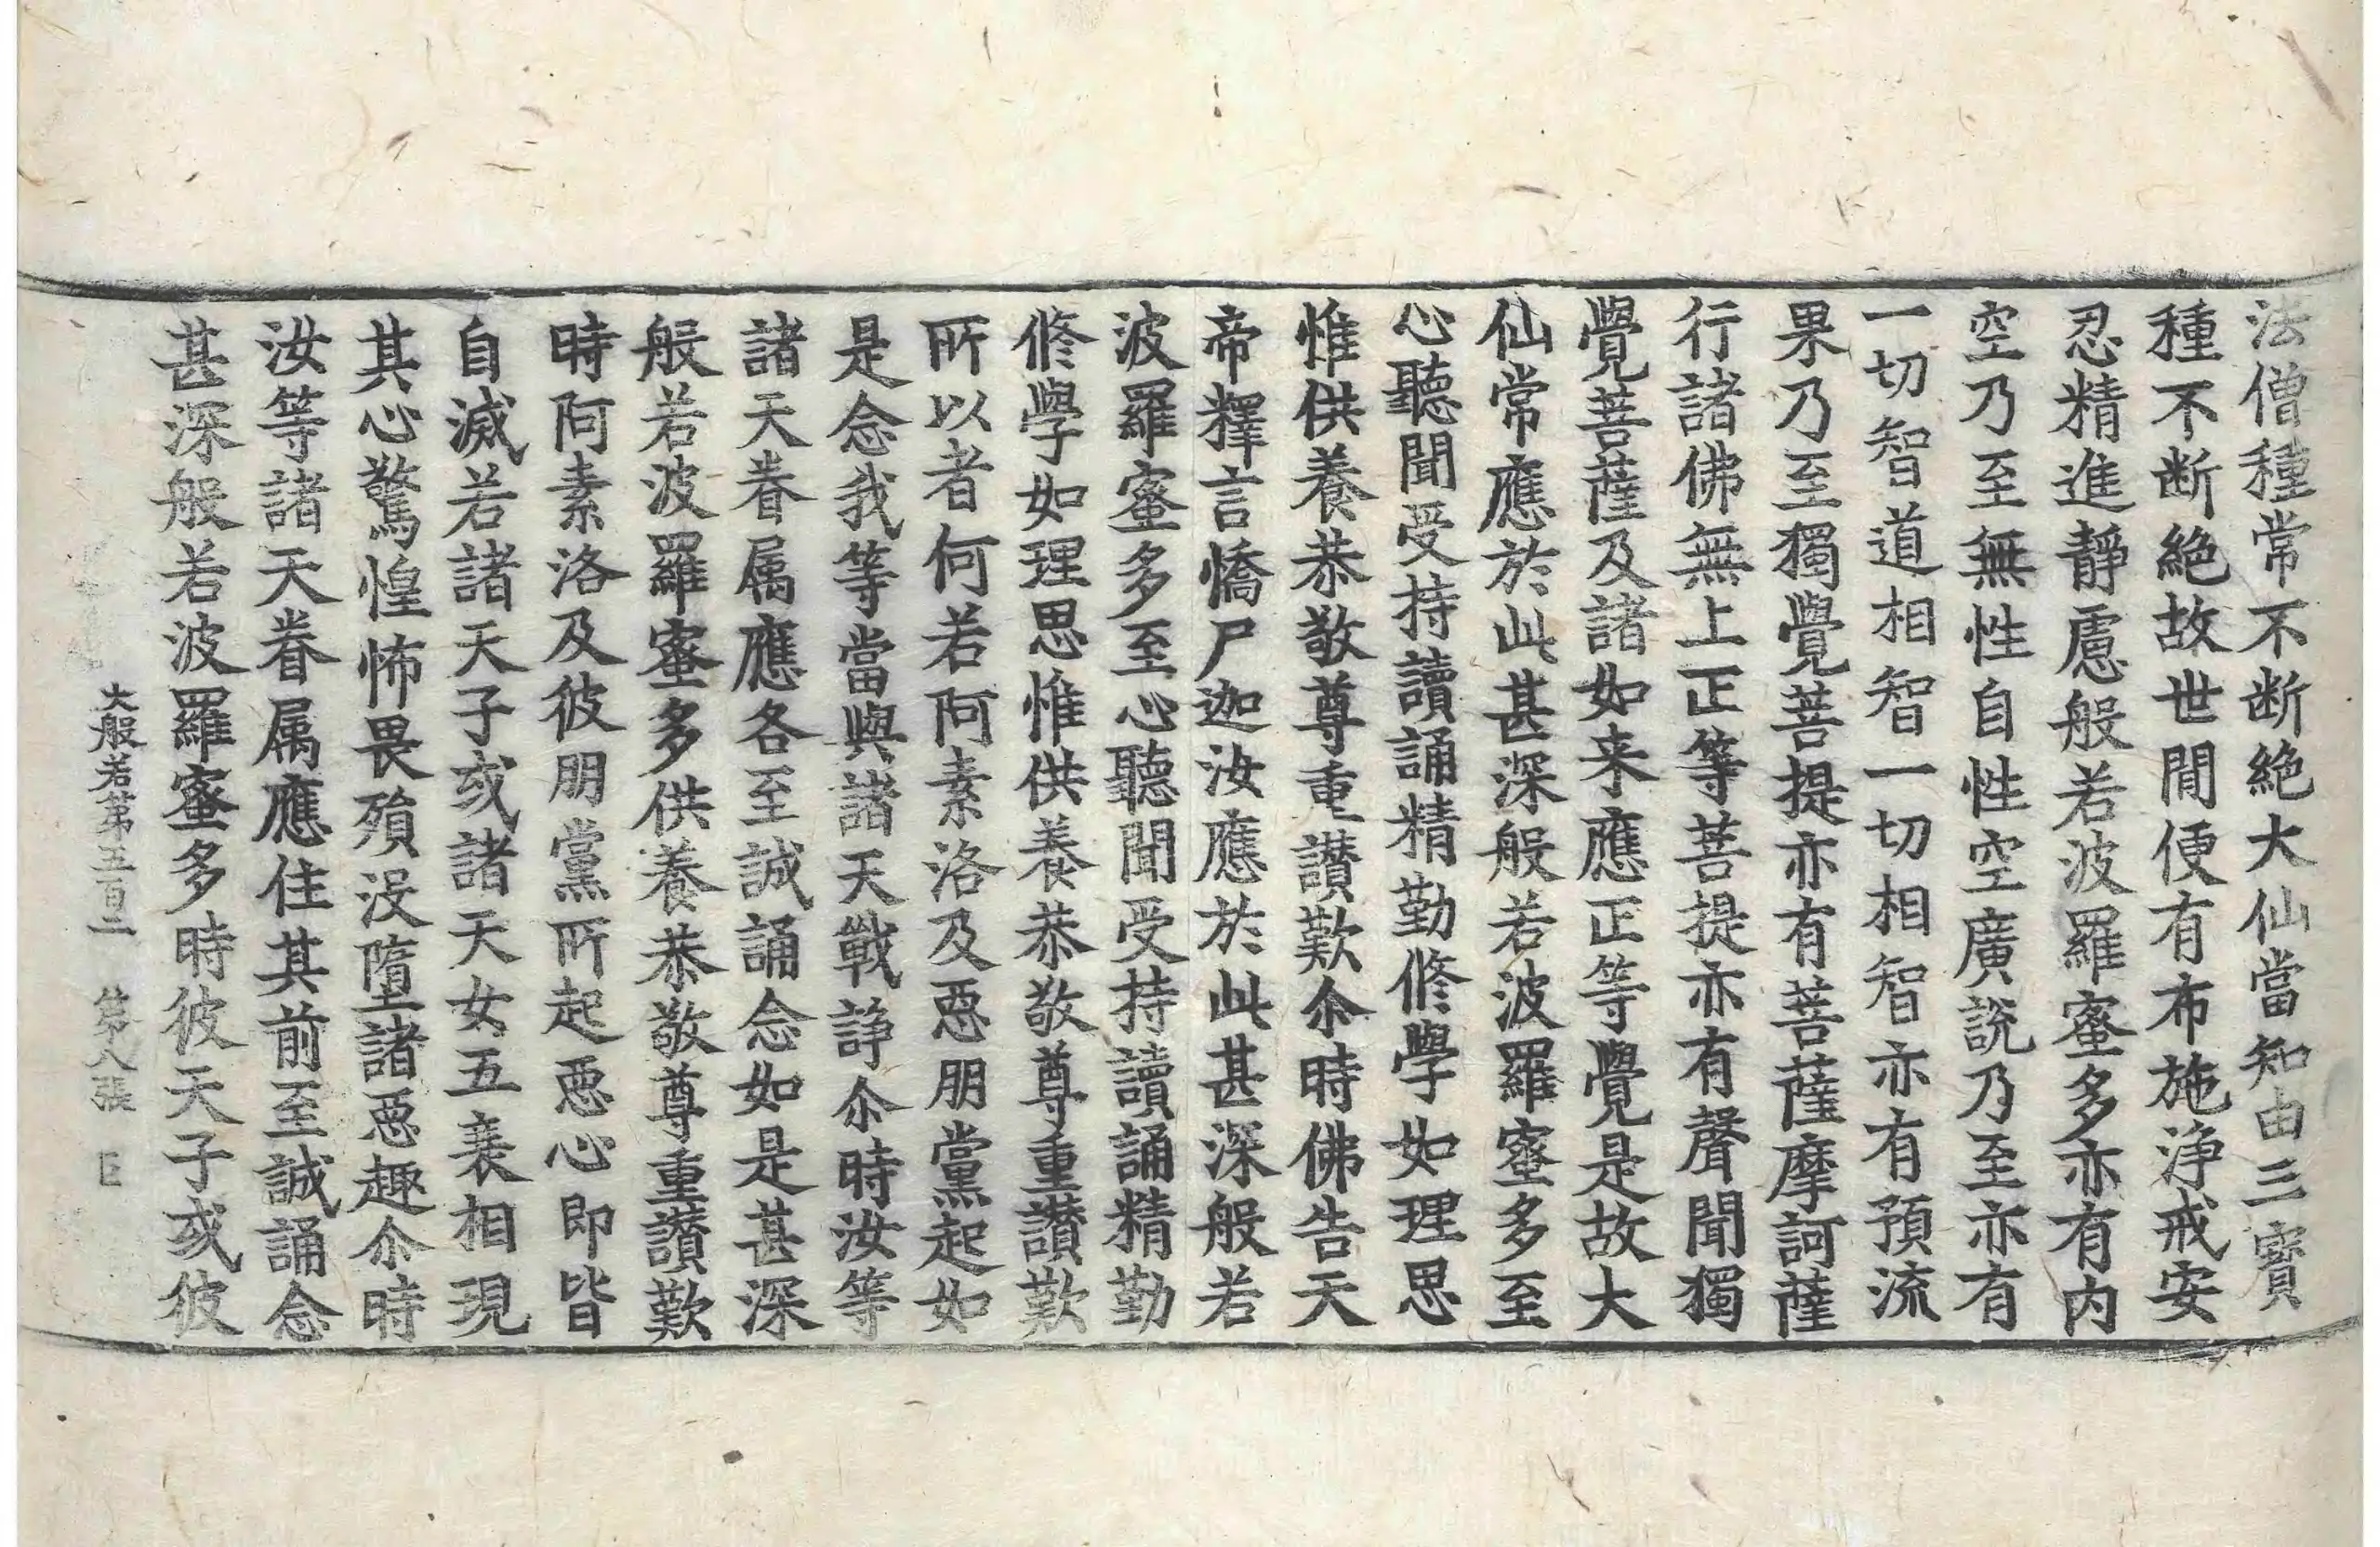 法僧種常不断絶大仙當知由三寳
種不断絶故世間便有布施淨戒安
忍精進靜慮般若波羅蜜多亦有内
空乃至無性自性空廣說乃至亦有
一切智道相智一切相智亦有預流
果乃至獨覺菩提亦有菩薩摩訶薩
行諸佛無上正等菩提亦有聲聞獨
覺菩薩及諸如来應正等覺是故大
仙常應於此甚深般若波羅蜜多至
心聽聞受持讀誦精勤修學如理思
惟供養恭敬尊重讃歎尒時佛告天
帝釋言憍尸迦汝應於此甚深般若
波羅蜜多至心聽聞受持讀誦精勤
修學如理思惟供養恭敬尊重讃歎
所以者何若阿素洛及惡朋黨起如
是念我等當與諸天戰諍尒時汝等
諸天眷属應各至誠誦念如是甚深
般若波羅蜜多供養恭敬尊重讃歎
時阿素洛及彼朋黨所起惡心即皆
自滅若諸天子或諸天女五衰相現
其心驚惶怖畏殞没墮諸惡趣尒時
汝等諸天眷属應住其前至誠誦念
甚深般若波羅蜜多時彼天子或彼
大般若第五百二 第八張 巨